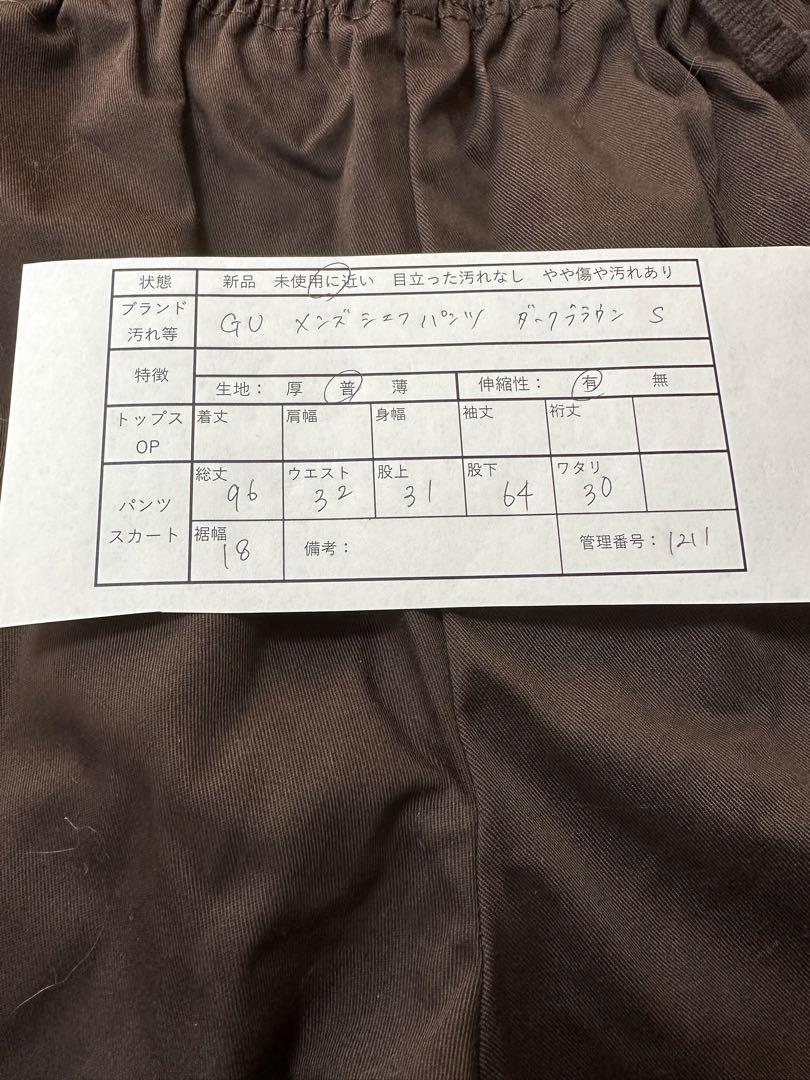 状態 新品 未使用に近い 目立った汚れなし やや傷や汚れあり
ブランド
汚れ等 GU メンズシェフパンツ ダークブラウン S
特徴
生地： 厚 普 薄 伸縮性： 有 無
トップス
OP 着丈 肩幅 身幅 袖丈 裄丈
パンツ
スカート 総丈 ウエスト 股上 股下 ワタリ
96 32 31 64 30
裄幅 備考： 管理番号： 1211
18